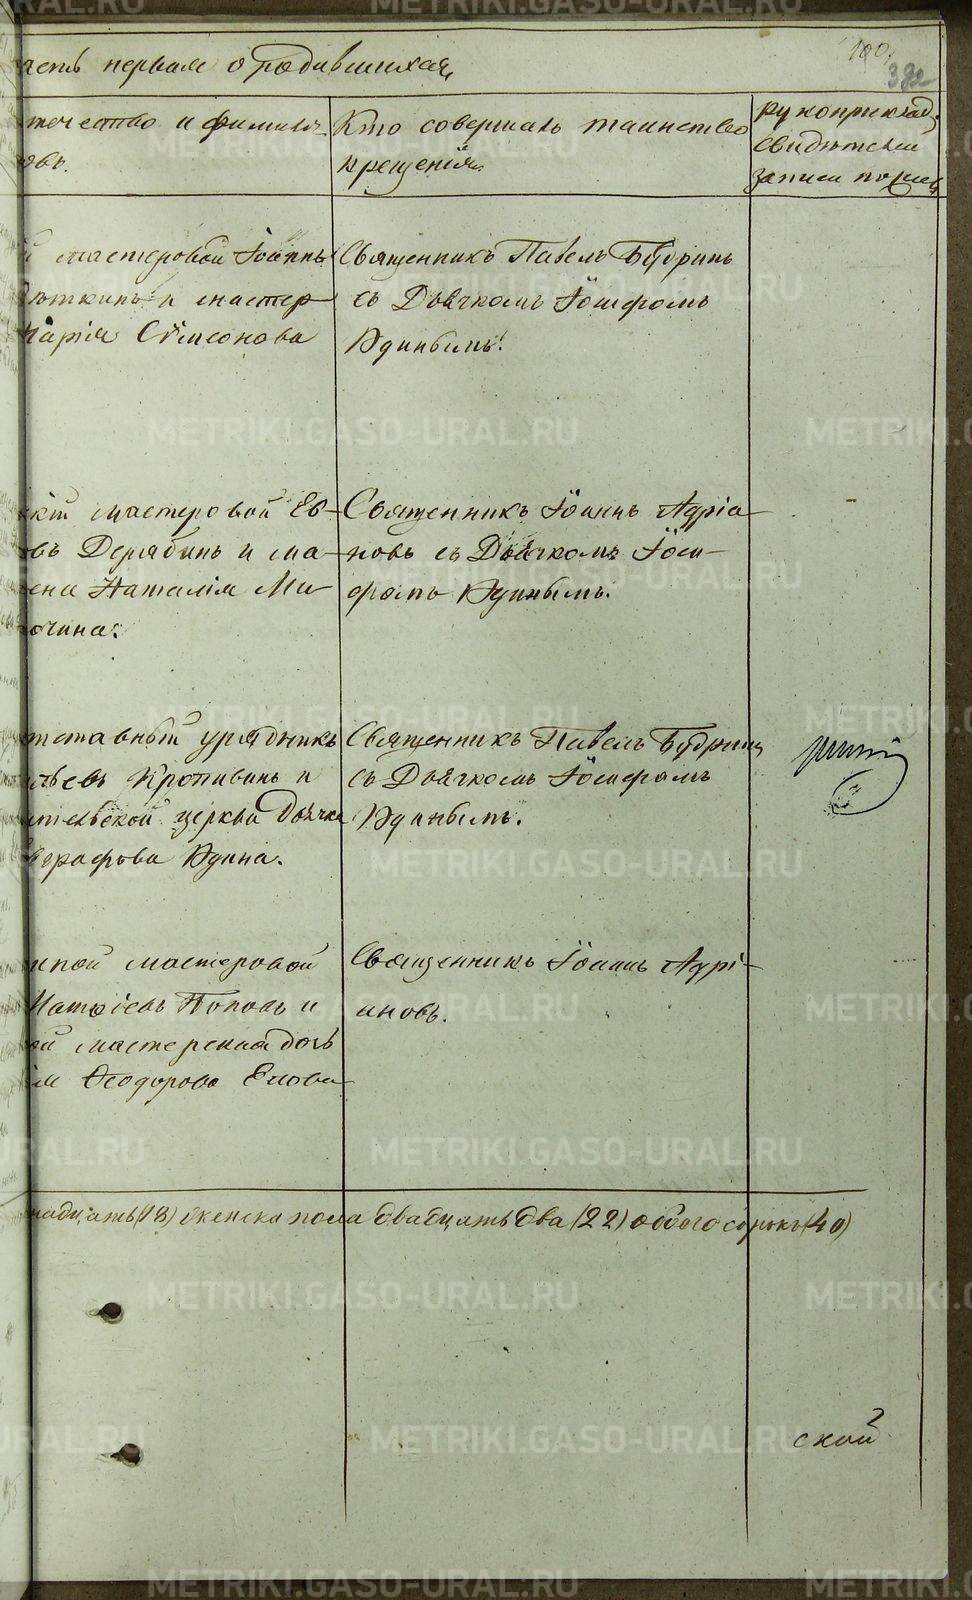 асть первая о родившихся
100.
382
течество и фамилія
овъ.
Кто совершалъ таинство
крещенія.
рукоприклад;
свидѣтели
записи по
й мастеровой Іоаннъ
юткинъ и мастер
Марія Сѵмеонова
Священникъ Павелъ Будринъ
съ Дьячкомъ Іосифомъ
Удинымъ.
скій мастеровой Ев-
въ Дерябинъ и ма-
ена Наталія Ми
очина.
Священникъ Іоаннъ Адріа-
новъ съ Дьячкомъ Іоси-
фомъ Удинымъ.
тставный урядникъ
льевъ Кропивинъ и
ительской церкви Дьячка
ерафова Удина.
Священникъ Павелъ Будринъ
съ Дьячкомъ Іосифомъ
Удинымъ.
ской мастеровой
Матѳіевъ Поповъ и
ой мастерская дочь
ія Ѳеодорова Елова
Священникъ Іоаннъ Адрі-
ановъ.
надцать (18) женска пола двадцать два (22) обоего сорокъ (40)
ской
METRIKI.GASO-URAL.RU